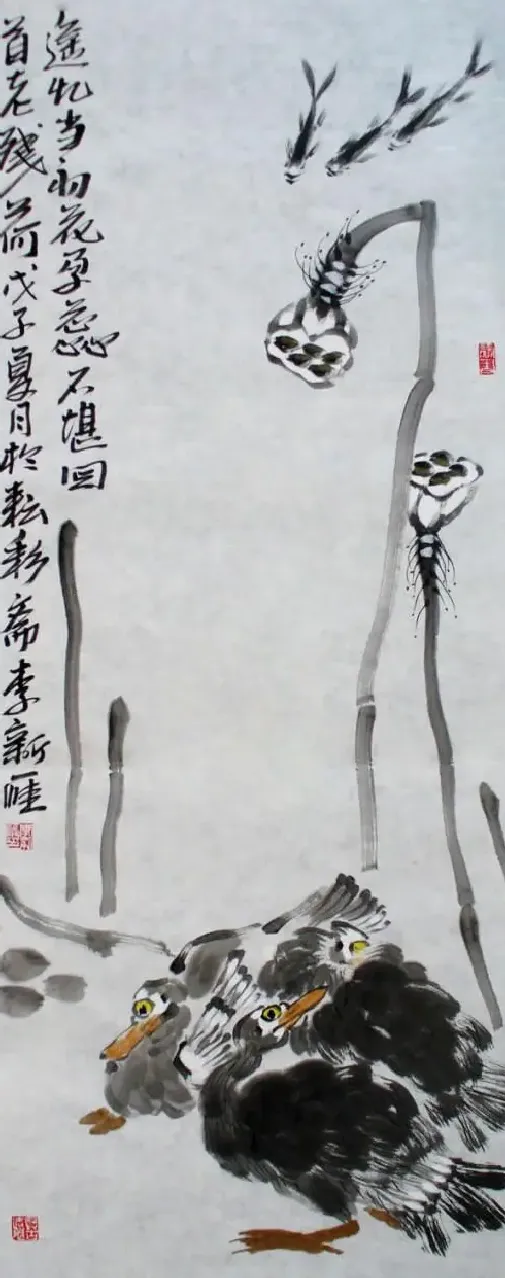 遥忆当初花孕蕊不堪回
首老残荷戊子夏月於耘彩斋李新